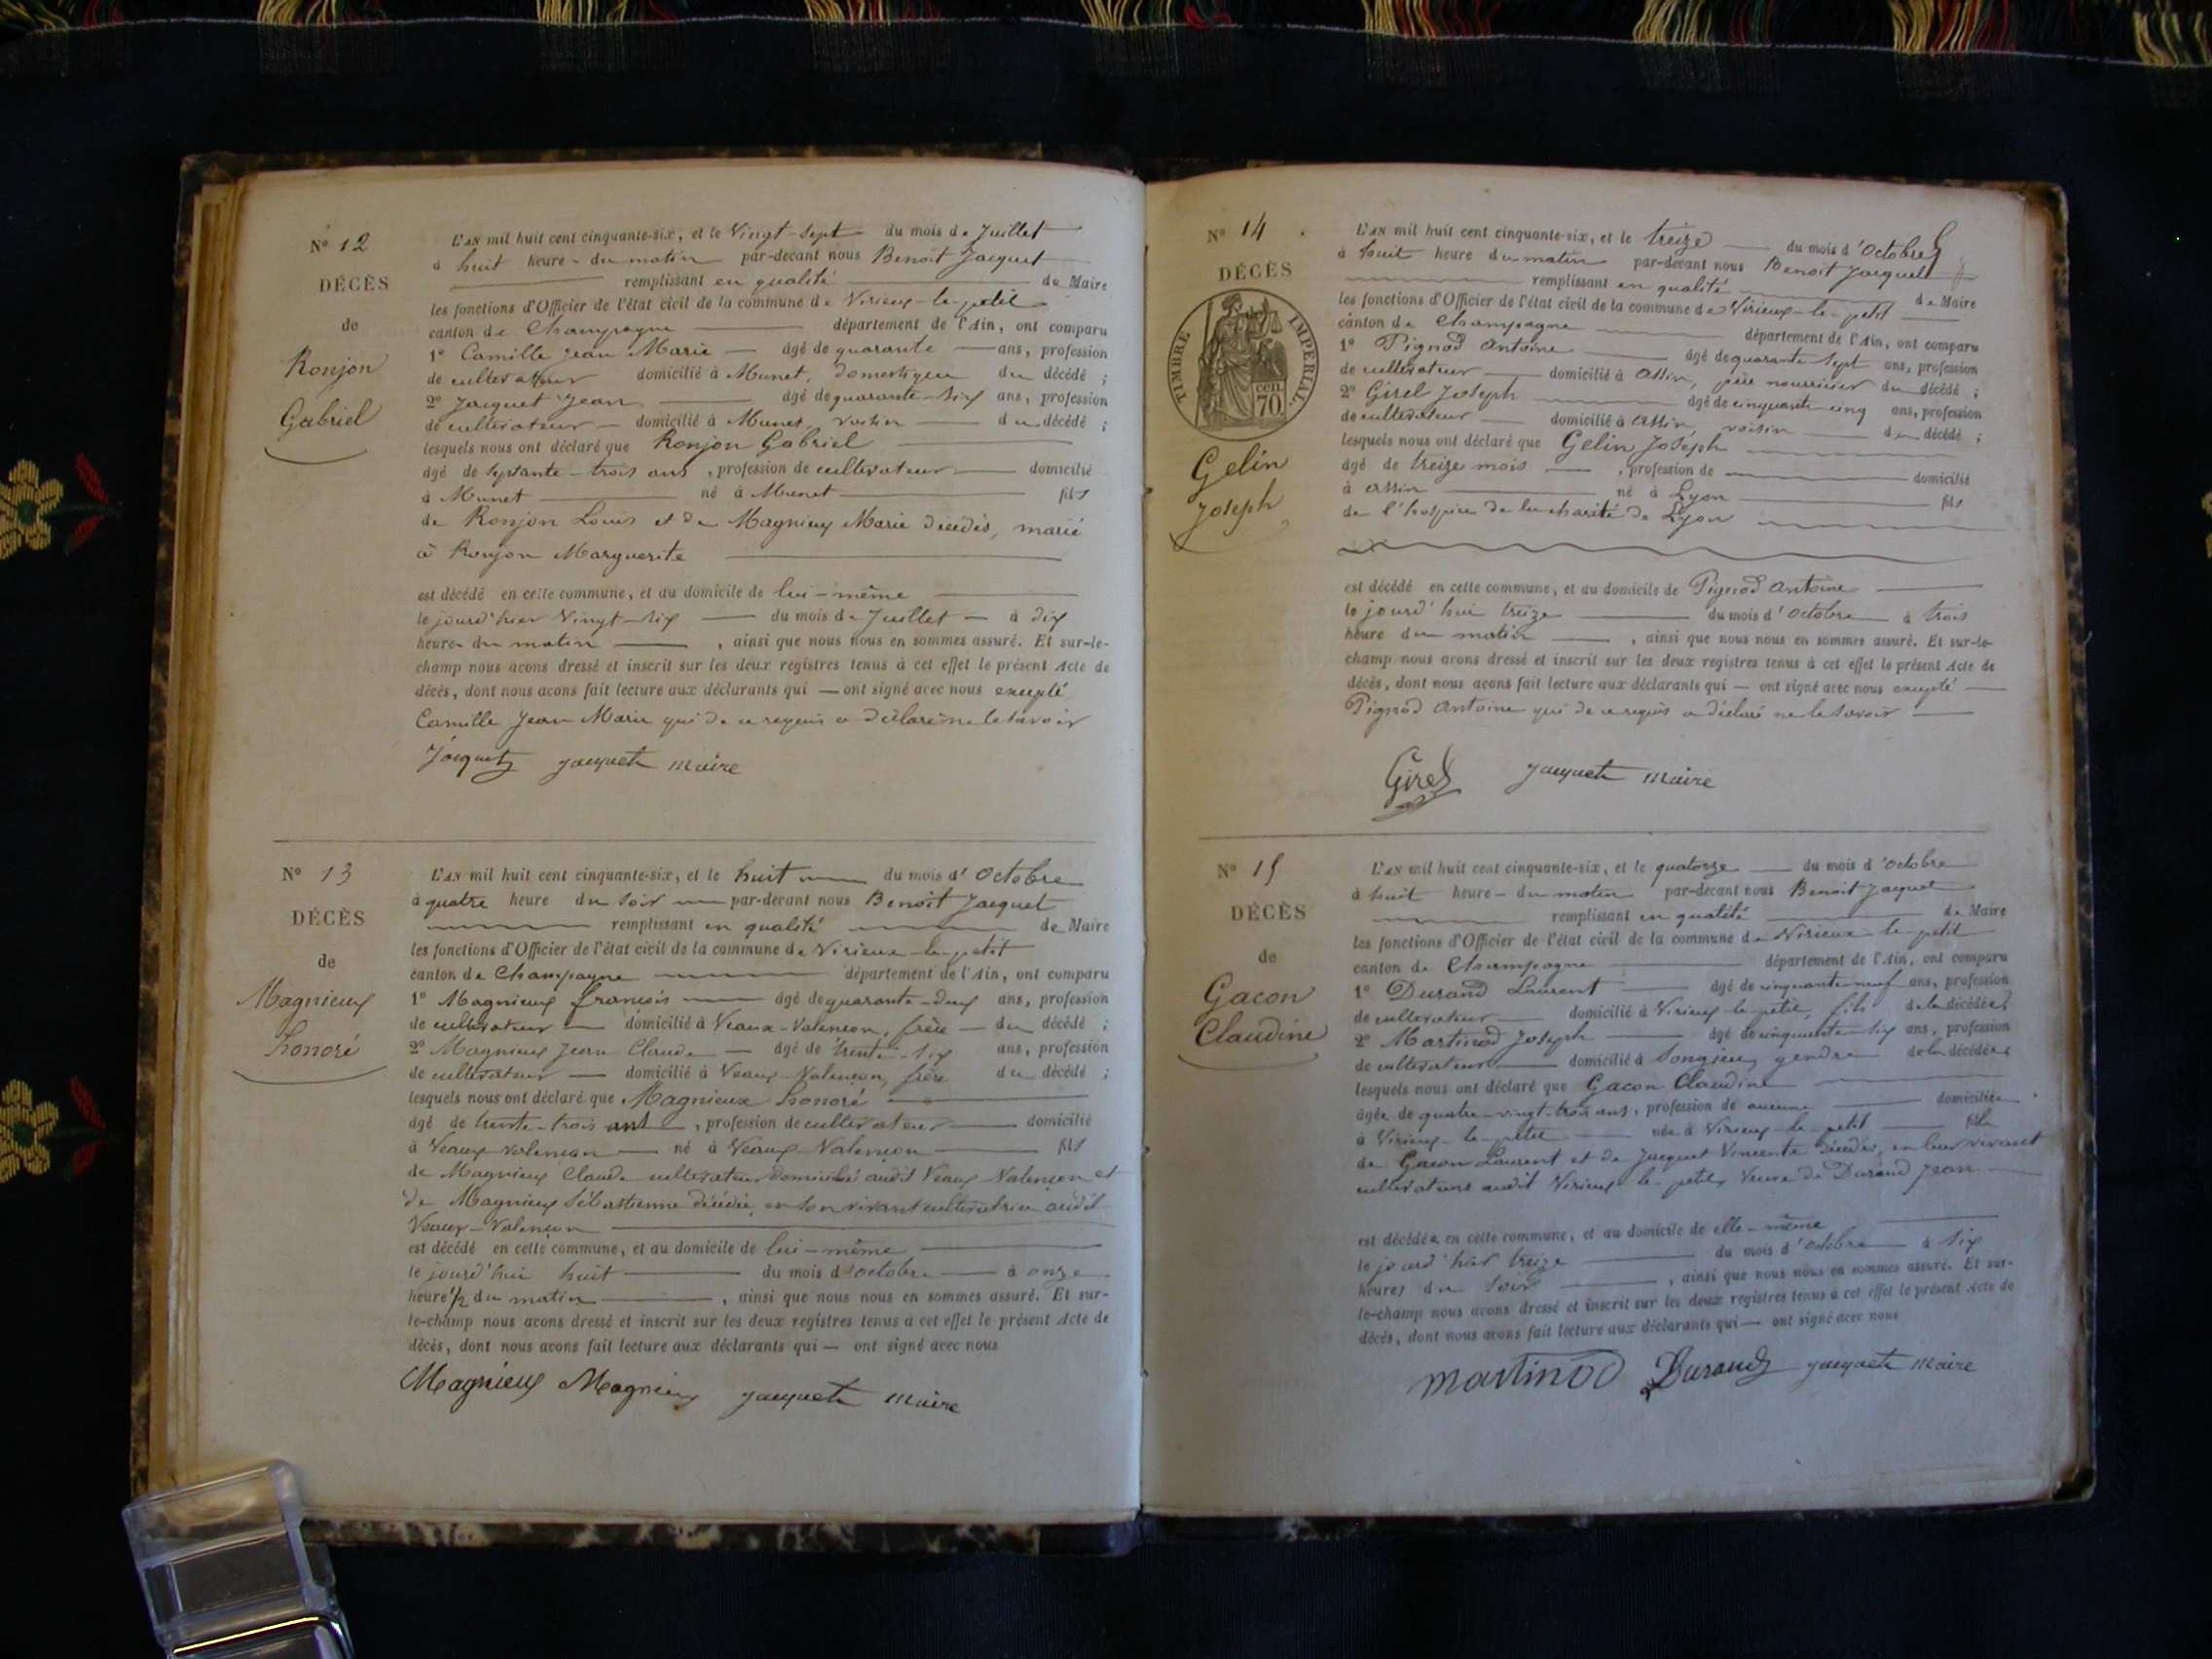 N° 12
DÉCÈS
de
Ronjon
Gabriel
L'AN mil huit cent cinquante-six, et le Vingt-Sept du mois de Juillet
à huit heure du matin par-devant nous Benoit Jacquet
remplissant en qualité de Maire
les fonctions d'Officier de l'état civil de la commune de Virieux-le-petit
canton de Champagne département de l'Ain, ont comparu
1° Camille Jean Marie âgé de quarante ans, profession
de cultivateur domicilié à Munet, domestique du décédé ;
2° Jacquet Jean âgé de quarante-six ans, profession
de cultivateur domicilié à Munet, voisin du décédé ;
lesquels nous ont déclaré que Ronjon Gabriel
âgé de septante-trois ans, profession de cultivateur domicilié
à Munet né à Munet fils
de Ronjon Louis et de Magnieux Marie décédés, marié
à Ronjon Marguerite
est décédé en cette commune, et au domicile de lui-même
le jourd'hier Vingt-six du mois de Juillet à dix
heures du matin, ainsi que nous nous en sommes assuré. Et sur-le-
champ nous avons dressé et inscrit sur les deux registres tenus à cet effet le présent Acte de
décès, dont nous avons fait lecture aux déclarants qui ont signé avec nous excepté
Camille Jean Marie qui de ce requis a déclaré ne le savoir
Jacquet Jacquet maire
N° 13
DÉCÈS
de
Magnieux
honoré
L'AN mil huit cent cinquante-six, et le huit du mois d'Octobre
à quatre heure du Soir par-devant nous Benoit Jacquet
remplissant en qualité de Maire
les fonctions d'Officier de l'état civil de la commune de Virieux-le-petit
canton de Champagne département de l'Ain, ont comparu
1° Magnieux françois âgé de quarante-deux ans, profession
de cultivateur domicilié à Veaux-Valençon, frère du décédé ;
2° Magnieux Jean Claude âgé de trente-six ans, profession
de cultivateur domicilié à Veaux-Valençon, frère du décédé ;
lesquels nous ont déclaré que Magnieux honoré
âgé de trente-trois ans, profession de cultivateur domicilié
à Veaux-Valençon né à Veaux-Valençon fils
de Magnieux Claude cultivateur domicilié audit Veaux-Valençon et
de Magnieux Sébastienne décédée, en son vivant cultivatrice audit
Veaux-Valençon
est décédé en cette commune, et au domicile de lui-même
le jourd'hui huit du mois d'octobre à onze
heure 1/2 du matin, ainsi que nous nous en sommes assuré. Et sur-
le-champ nous avons dressé et inscrit sur les deux registres tenus à cet effet le présent Acte de
décès, dont nous avons fait lecture aux déclarants qui ont signé avec nous
Magnieux Magnieux Jacquet maire
N° 14
DÉCÈS
TIMBRE IMPERIAL.
cen.
70
Gelin
Joseph
L'AN mil huit cent cinquante-six, et le treize du mois d'Octobre
à huit heure du matin par-devant nous Benoit Jacquet
remplissant en qualité de Maire
les fonctions d'Officier de l'état civil de la commune de Virieux-le-petit
canton de Champagne département de l'Ain, ont comparu
1° Pignod Antoine âgé de quarante sept ans, profession
de cultivateur domicilié à Assin, père nourricier du décédé ;
2° Girel Joseph âgé de cinquante-cinq ans, profession
de cultivateur domicilié à Assin, voisin du décédé ;
lesquels nous ont déclaré que Gelin Joseph
âgé de treize mois, profession de domicilié
à Assin né à Lyon fils
de l'hospice de la charité de Lyon
est décédé en cette commune, et au domicile de Pignod Antoine
le jourd'hui treize du mois d'Octobre à trois
heure du matin, ainsi que nous nous en sommes assuré. Et sur-le-
champ nous avons dressé et inscrit sur les deux registres tenus à cet effet le présent Acte de
décès, dont nous avons fait lecture aux déclarants qui ont signé avec nous excepté
Pignod Antoine qui de ce requis a déclaré ne le savoir
Girel Jacquet maire
N° 15
DÉCÈS
de
Gacon
Claudine
L'AN mil huit cent cinquante-six, et le quatorze du mois d'octobre
à huit heure du matin par-devant nous Benoit Jacquet
remplissant en qualité de Maire
les fonctions d'Officier de l'état civil de la commune de Virieux-le-petit
canton de Champagne département de l'Ain, ont comparu
1° Durand Laurent âgé de cinquante-neuf ans, profession
de cultivateur domicilié à Virieux-le-petit, fils de la décédée ;
2° Martinod Joseph âgé de cinquante-six ans, profession
de cultivateur domicilié à Songieux, gendre de la décédée ;
lesquels nous ont déclaré que Gacon Claudine
âgée de quatre-vingt-trois ans, profession de aucune domiciliée
à Virieux-le-petit née à Virieux-le-petit fille
de Gacon Laurent et de Jacquet Vincente décédés, en leur vivant
cultivateurs audit Virieux-le-petit, Veuve de Durand Jean
est décédée en cette commune, et au domicile de elle-même
le jourd'hier treize du mois d'octobre à six
heures du Soir, ainsi que nous nous en sommes assuré. Et sur-
le-champ nous avons dressé et inscrit sur les deux registres tenus à cet effet le présent Acte de
décès, dont nous avons fait lecture aux déclarants qui ont signé avec nous
Martinod Durand Jacquet maire